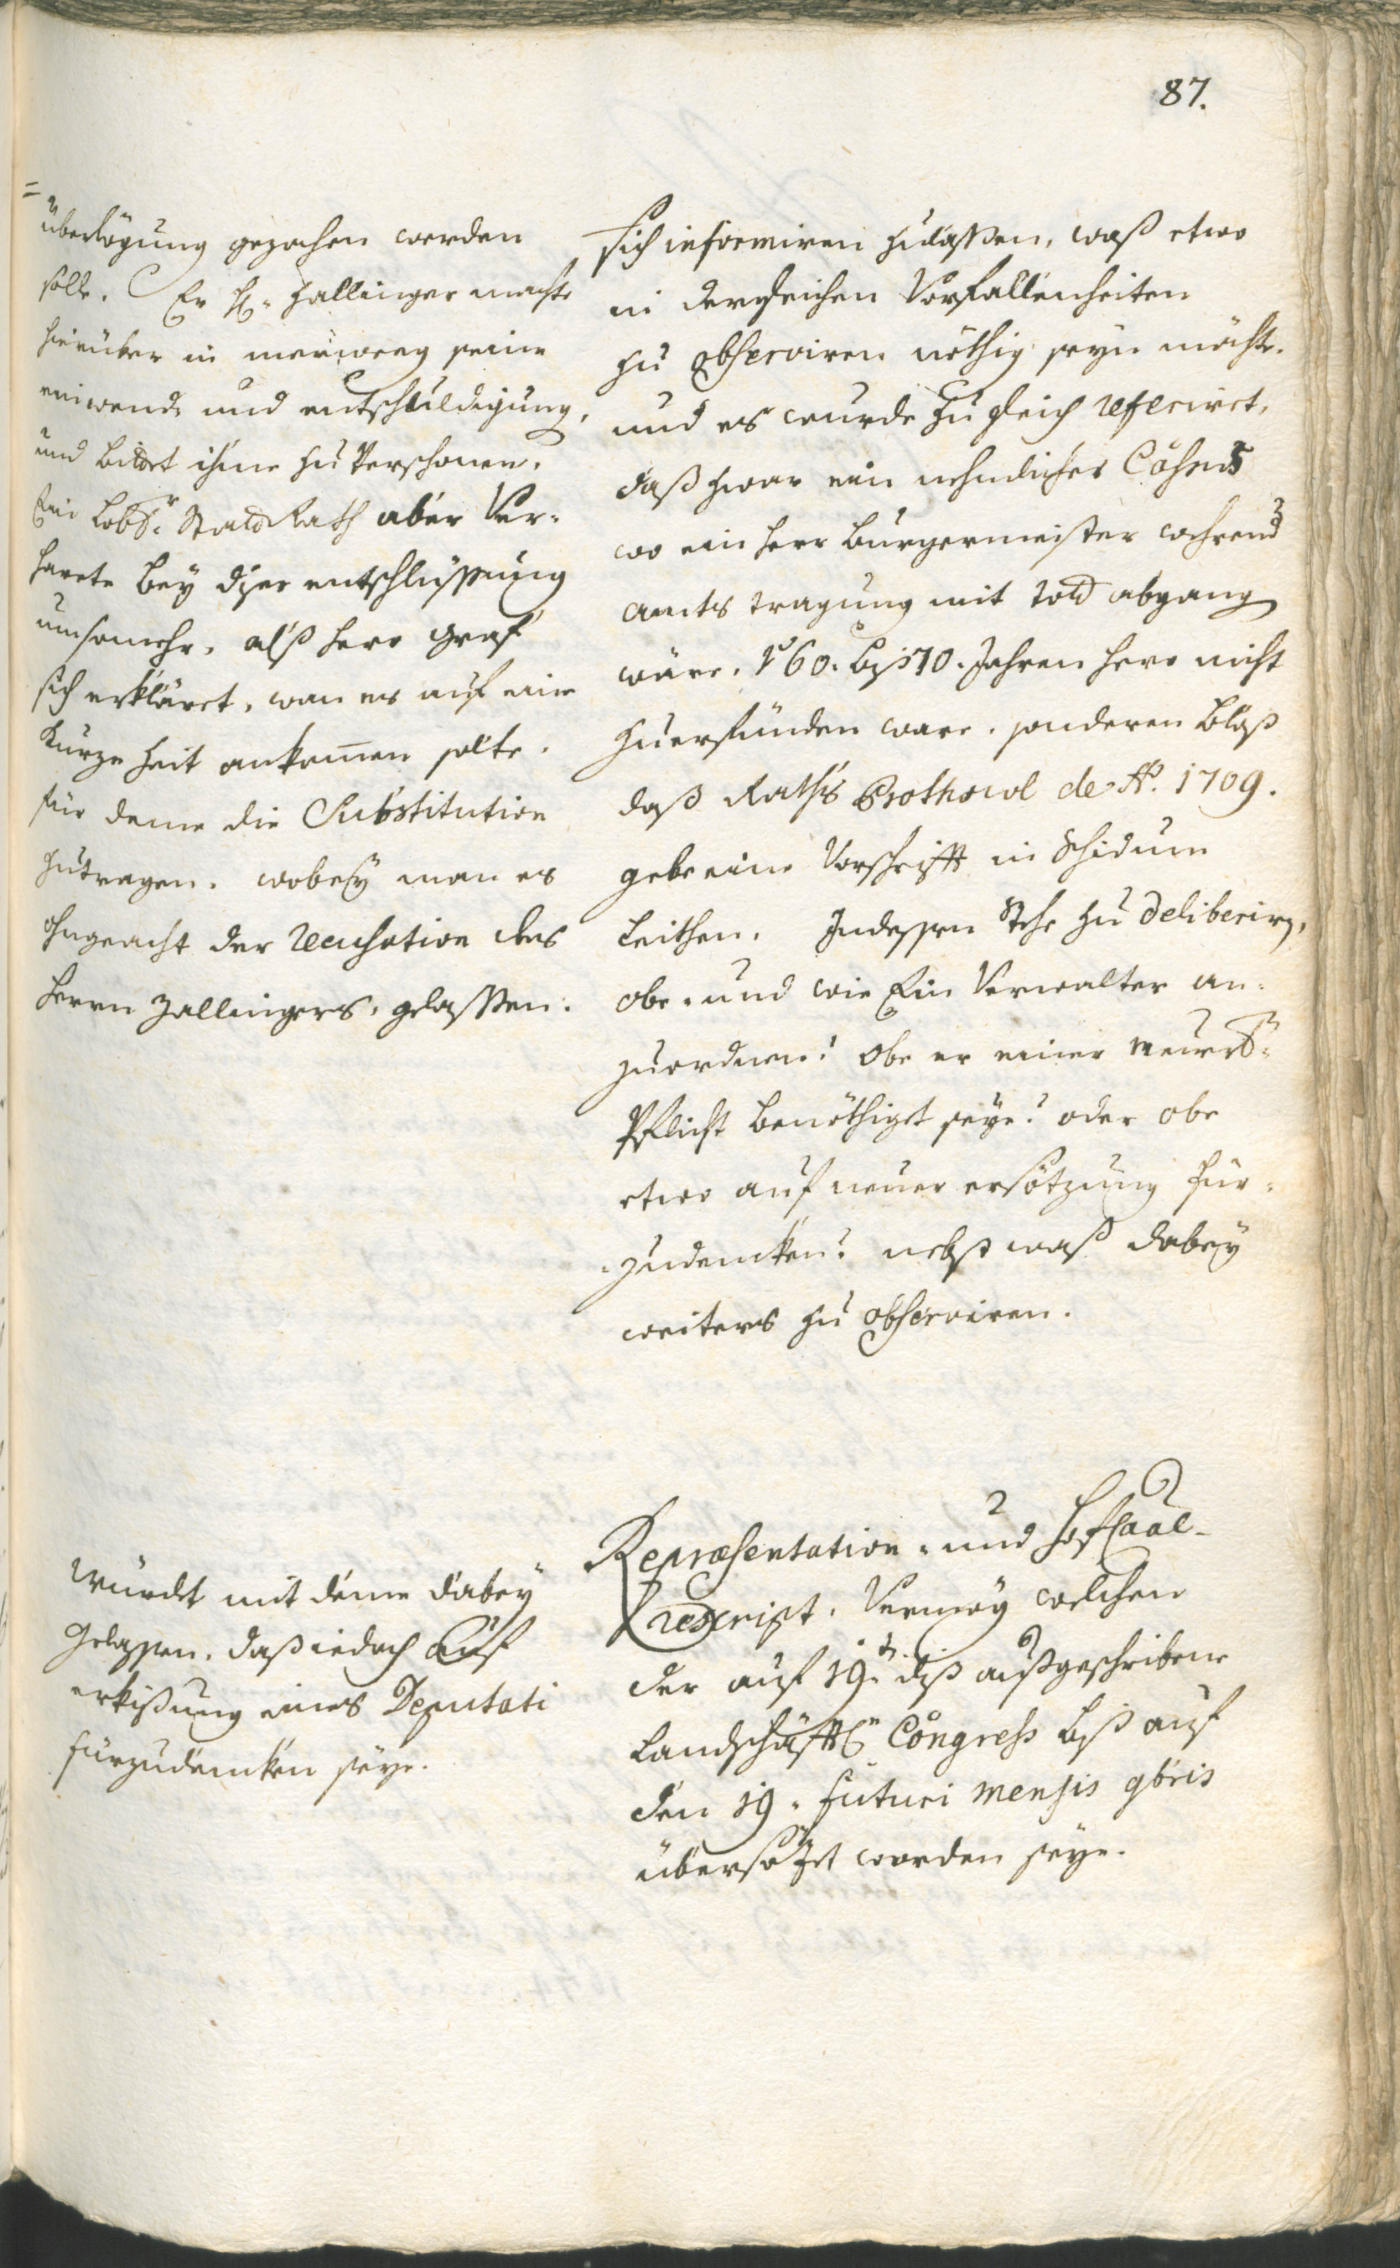 87.
überlögung gezochen werden
solle. Er H: Zallinger machte
hierüber in meiweeg seine
einwend und entschuldigung,
und bittet ihme zu Verschonen.
Ein Lobs: Statt Rath aber Ver-
harete bey diser entschlüssung
umsomehr, alß Herr Graf
sich erkläret, wan es auf eine
kurze Zeit ankomen solte.
für deme die Substitution
zutragen. wobey man es
ohngeacht der Recusation des
Herrn Zallingers, gelassen.
sich informiren zulassen, waß etwo
in dergleichen Vorfallenheiten
zu observiren nöthig seyn möchte.
und es wurde zu gleich referirt,
daß zwar ein nehmlicher Cåhsus
wo ein Herr Burgermeister wehrend
amts tragung mit Todt abgang
wäre, v 60. bis 70. Jahren hero nicht
zuerfünden ware, sonderen bloß
daß Raths Prothocol de Aõ. 1709.
gebe eine Vorschrifft in Schidum
Leithen. Indessen Stehe zu deliberirn,
obe- und wie Ein Verwalter an-
zuordnen? Obe er einer neuen
Pflicht benöthiget seye? oder obe
etwo auf neuer ersötzung für-
zudencken? nebst waß dabey
weiters zu observiren.
Würdt mit deme dabey
gelassen, daß iedoch auf
erkißung eines Deputati
fürzudencken seye.
Repræsentation- und Hof Caal-
rescript, Vermög welchen
der auf 19t. diß außgeschribene
Landschäfftl. Congress biß auf
den 19. futuri mensis 9bris
übersötzt worden seye.